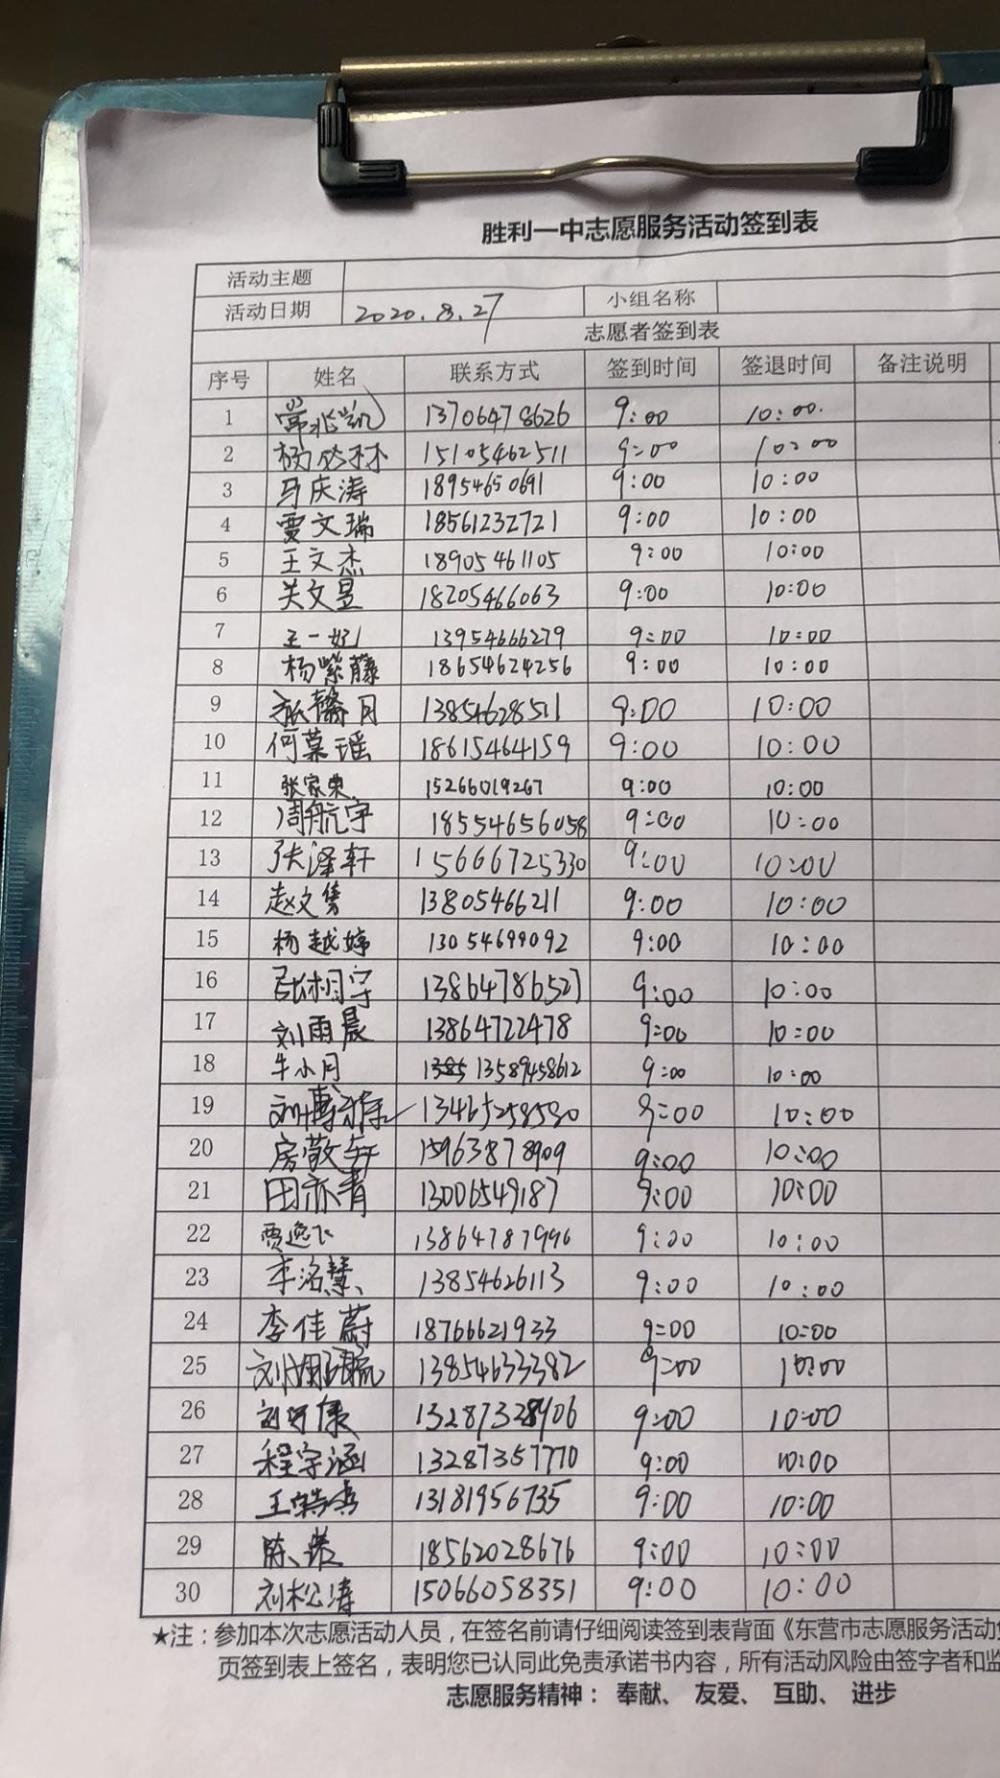 胜利一中志愿服务活动签到表
活动主题
活动日期 2020.8.27 小组名称
志愿者签到表
序号 姓名 联系方式 签到时间 签退时间 备注说明
1 常兆凯 13706478626 9:00 10:00.
2 杨 林 15105462511 9:00 10:00
3 马庆涛 18954650691 9:00 10:00
4 贾文瑞 18561232721 9:00 10:00
5 王文杰 18905461105 9:00 10:00
6 关文昱 18205466063 9:00 10:00
7 王一妃 13954666279 9:00 10:00
8 杨紫藤 18654624256 9:00 10:00
9 张馨月 13854628511 9:00 10:00
10 何慕瑶 18615464159 9:00 10:00
11 张家荣 15266019267 9:00 10:00
12 周航宇 18554656058 9:00 10:00
13 张泽轩 15666725330 9:00 10:00
14 赵文隽 13805466211 9:00 10:00
15 杨越婷 13054699092 9:00 10:00
16 张栩宁 13864786527 9:00 10:00
17 刘雨晨 13864722478 9:00 10:00
18 牛小月 13589458612 9:00 10:00
19 刘博 13465258580 9:00 10:00
20 房敬轩 15963878909 9:00 10:00
21 田亦青 13006549187 9:00 10:00
22 贾逸飞 13864787996 9:00 10:00
23 李洺慧 13854626113 9:00 10:00
24 李佳蔚 18766621933 9:00 10:00
25 刘 13854633382 9:00 10:00
26 刘 康 13287328906 9:00 10:00
27 程宇涵 13287357770 9:00 10:00
28 王 13181956735 9:00 10:00
29 陈 18562028676 9:00 10:00
30 刘松涛 15066058351 9:00 10:00
★注：参加本次志愿活动人员，在签名前请仔细阅读签到表背面《东营市志愿服务活动
页签到表上签名，表明您已认同此免责承诺书内容，所有活动风险由签字者和监
志愿服务精神： 奉献、 友爱、 互助、 进步